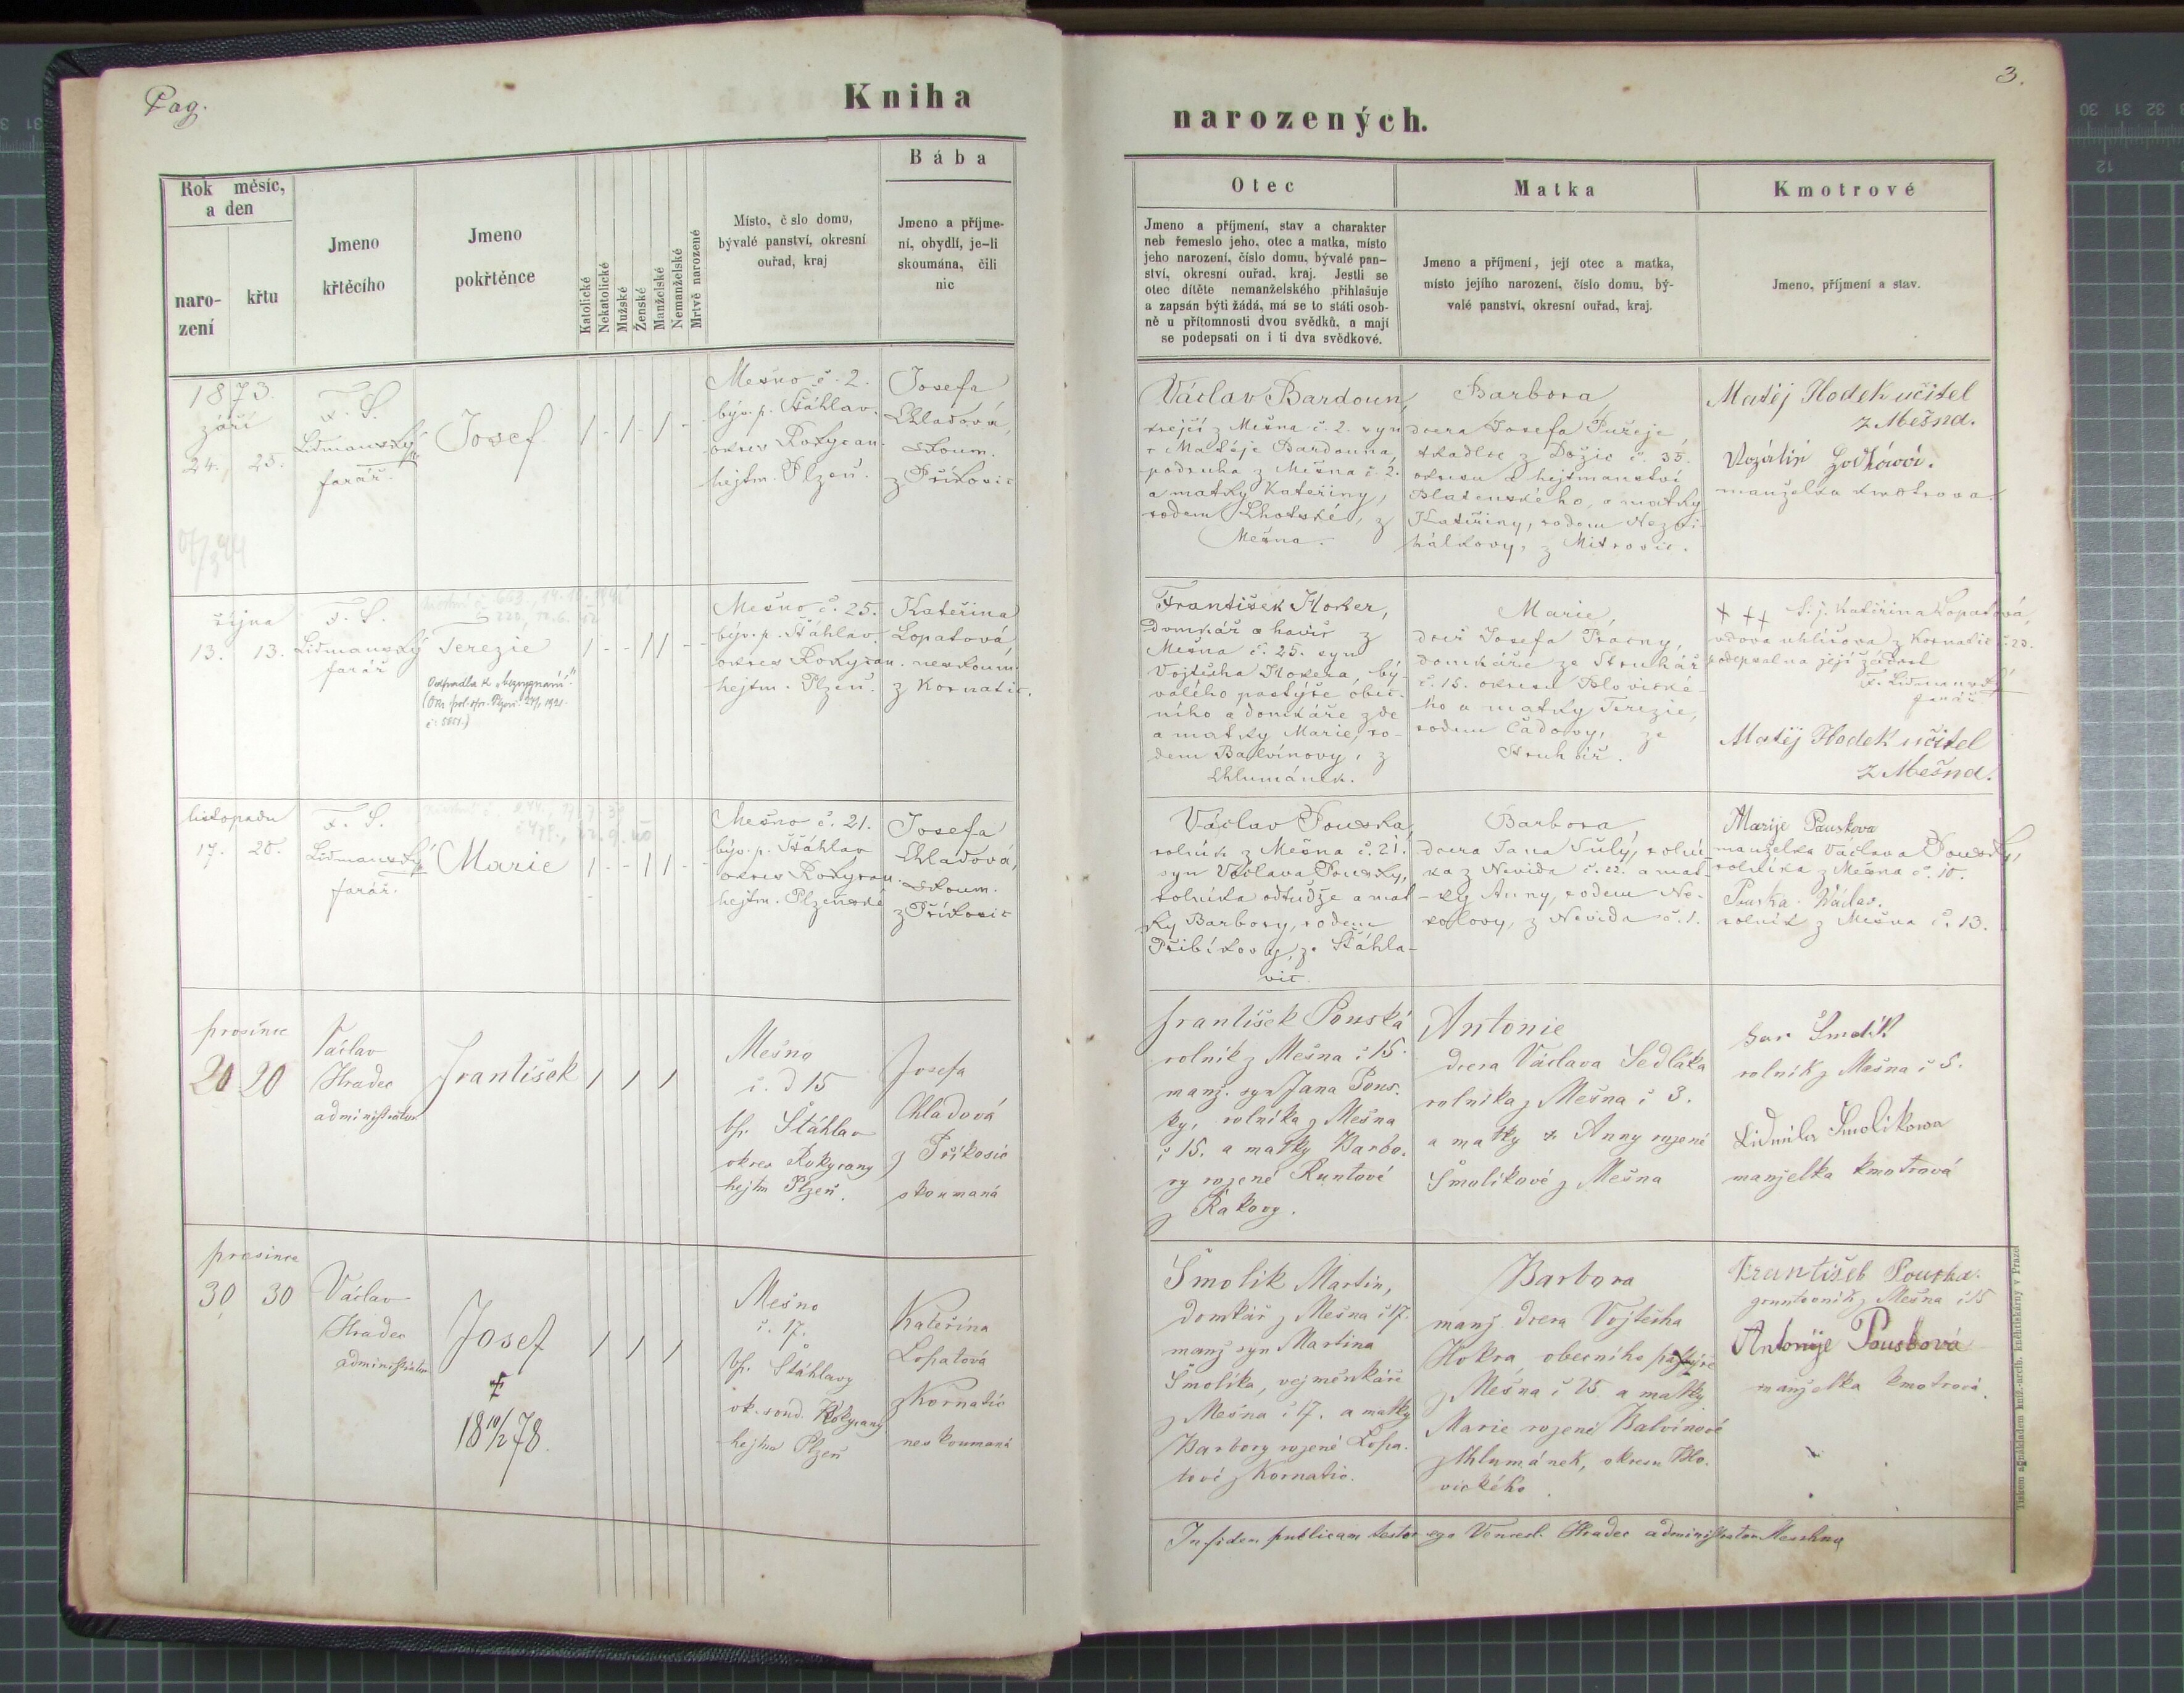 Pag.
Kniha
narozených.
3.
Rok měsíc,
a den
naro-
zení
křtu
Jmeno
křtěcího
Jmeno
pokřtěnce
Katolické
Nekatolické
Mužské
Ženské
Manželské
Nemanželské
Mrtvě narozené
Místo, č slo domu,
bývalé panství, okresní
ouřad, kraj
Bába
Jmeno a příjme-
ní, obydlí, je-li
skoumána, čili
nic
Otec
Jmeno a příjmení, stav a charakter
neb řemeslo jeho, otec a matka, místo
jeho narození, číslo domu, bývalé pan-
ství, okresní ouřad, kraj. Jestli se
otec dítěte nemanželského přihlašuje
a zapsán býti žádá, má se to státi osob-
ně u přítomnosti dvou svědků, a mají
se podepsati on i ti dva svědkové.
Matka
Jmeno a příjmení, její otec a matka,
místo jejího narození, číslo domu, bý-
valé panství, okresní ouřad, kraj.
Kmotrové
Jmeno, příjmení a stav.
1873.
září
24. 25.
F. S.
Lidmanský
farář.
Josef
1 - 1 - 1 -
Mešno č. 2.
býv. p. Šťáhlav.
okres Rokycan.
hejtm. Plzeň.
Josefa
Chladová,
skoum.
z Příkosic
Václav Bardoun,
krejčí z Mešna č. 2. syn
Matěje Bardouna,
podruha z Mešna č. 2.
a matky Kateřiny,
rodem Lhotské, z
Mešna.
Barbora,
dcera Josefa Pužeje,
tkadlce z Dožic č. 35.
okresu a hejtmanství
Blatenského, a matky
Kateřiny, rodem
z Mitrovic.
Matěj Hodek učitel
z Mešna.
Rozálie
manželka kmotrova
října
13. 13.
F. S.
Lidmanský
farář
Terezie
Odpadla k „bezvyznání"
1 - - 1 1 - -
Mešno č. 25.
býv. p. Šťáhlav.
okres Rokycan.
hejtm. Plzeň.
Kateřina
Lopatová
neskoum.
z Kornatic.
František Hokr,
domkář a havíř z
Mešna č. 25. syn
Vojtěcha Hokra, bý-
valého pastýře obec-
ního a domkáře zde
a matky Marie, ro-
dem Balvínovy, z
Chlumánek.
Marie,
dcera Josefa
domkáře ze Struhář
č. 15. okresu Blovické-
ho a matky Terezie,
rodem Čadovy, ze
Struhář.
+ ++ S. j. Kateřina Lopatová,
vdova z Kornatic č. 23.
podepsal na její žádost
F. Lidmanský
farář
Matěj Hodek učitel
z Mešna.
listopadu
17. 20.
F. S.
Lidmanský
farář.
Marie
1 - - 1 1 - -
Mešno č. 21.
býv. p. Šťáhlav
okres Rokycan.
hejtm. Plzeňské
Josefa
Chladová,
skoum.
z Příkosic
Václav Pouska,
rolník z Mešna č. 21.
syn Václava Pousky,
rolníka odtudže a mat
ky Barbory, rodem
Přibíkovy, ze Šťáhla-
vic.
Barbora,
dcera Jana Šulý, rolní
ka z Nevida č. 22. a mat
-ky Anny, rodem Ne-
kolovy, z Nevida č. 1.
Marije Pauskova
manželka Václava Pousky,
rolníka z Mešna č. 10.
Pouska Wáclav.
rolník z Mešna č. 13.
prosince
20 20
Václav
Hradec
administrátor
František
1 1 1
Mešno
č. d 15
bp. Šťáhlav
okres Rokycany
hejtm Plzeň.
Josefa
Chladová
z Příkosic
skoumaná
František Pouská
rolník z Mešna č 15.
manž. syn Jana Pous.
ky, rolníka z Mešna
č 15. a matky Barbo.
ry rozené Runtové
z Rakovy.
Antonie
dcera Václava Sedláka
rolníka z Mešna č 3.
a matky Anny rozené
Smolíkové z Mešna
Jan Smolík
rolník z Mešna č 5.
Lidmila Smolíkowa
manželka kmotrová
prosince
30 30
Václav
Hradec
administrátor
Josef
†
18 10/2 78.
1 1 1
Mešno
č. 17.
bp. Šťáhlavy
ok. soud. Rokycany
hejtm Plzeň
Kateřina
Lopatová
z Kornatic
neskoumaná
Smolík Martin,
domkář z Mešna č 17.
manž syn Martina
Smolíka, vejměnkáře
z Mešna č 17. a matky
Barbory rozené Lopa.
tové z Kornatic.
Barbora
manž. dcera Vojtěcha
Hokra obecního pastýře
z Mešna č 25 a matky
Marie rozené Balvínové
z Chlumánek, okresu Blo.
vického.
František Pouska.
gruntovník z Mešna č 15
Antonije Pousková
manželka kmotrová.
In fidem publicam testor ego Vencesl. Hradec administrator Meschno